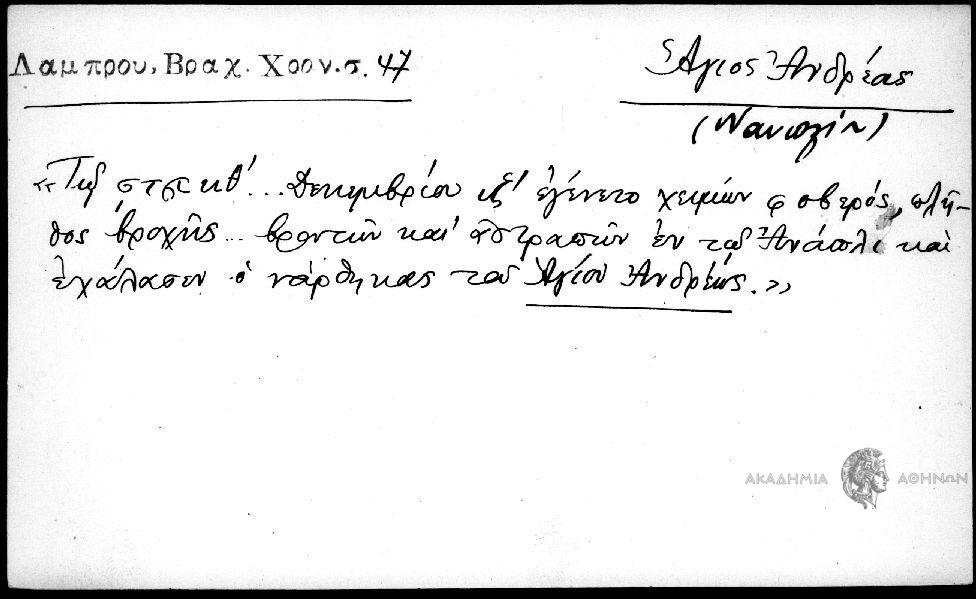 Λαμπρου, Βραχ. Χρον. σ. 47
Ἅγιος Ἀνδρέας
(Ναυπλίου)
«Τῷ ϛτπκθʹ... Δεκεμβρίου ιϛʹ ἐγένετο χειμών φοβερός, πλῆ-
θος βροχῆς... βροντῶν καὶ ἀστραπῶν ἐν τῷ Ἀνάπλι καὶ
ἐχάλασεν ὁ νάρθηκας τοῦ Ἁγίου Ἀνδρέως.»
ΑΚΑΔΗΜΙΑ ΑΘΗΝΩΝ